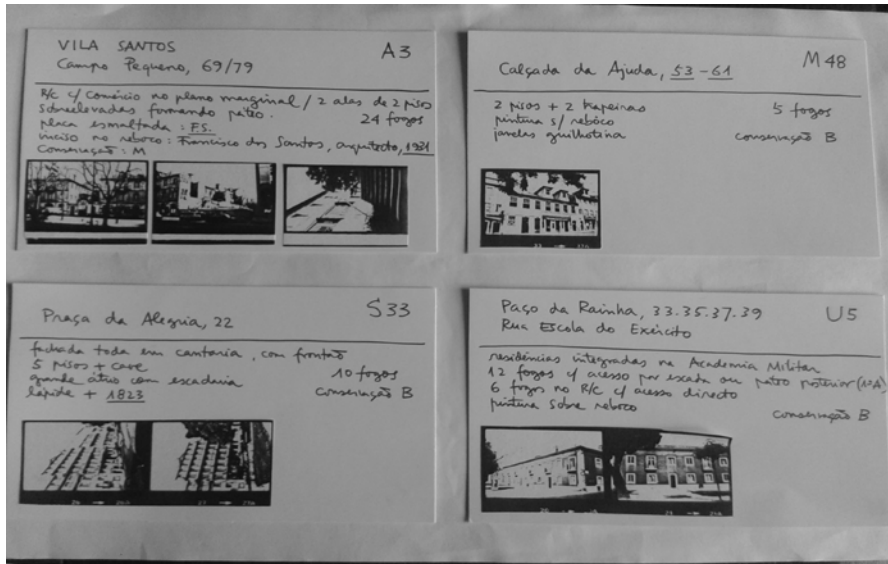 VILA SANTOS
A3
Campo Pequeno, 69/79
R/c c/ comércio no plano marginal / 2 alas de 2 pisos
sobrelevadas formando páteo.
24 fogos
placa esmaltada : F.S.
inciso no reboco : Francisco dos Santos, arquitecto, 1931
Conservação : M
Calçada da Ajuda, 53-61
M48
2 pisos + 2 trapeiras
5 fogos
pintura s/ reboco
janelas guilhotina
conservação B
Praça da Alegria, 22
S33
fachada toda em cantaria, com frontão
5 pisos + cave
10 fogos
grande átrio com escadaria
conservação B
lápide + 1823
Paço da Rainha, 33.35.37.39
U5
Rua Escola do Exército
residências integradas na Academia Militar
12 fogos c/ acesso por escada ou pátio posterior (10A)
6 fogos no R/c c/ acesso directo
pintura sobre reboco
conservação B